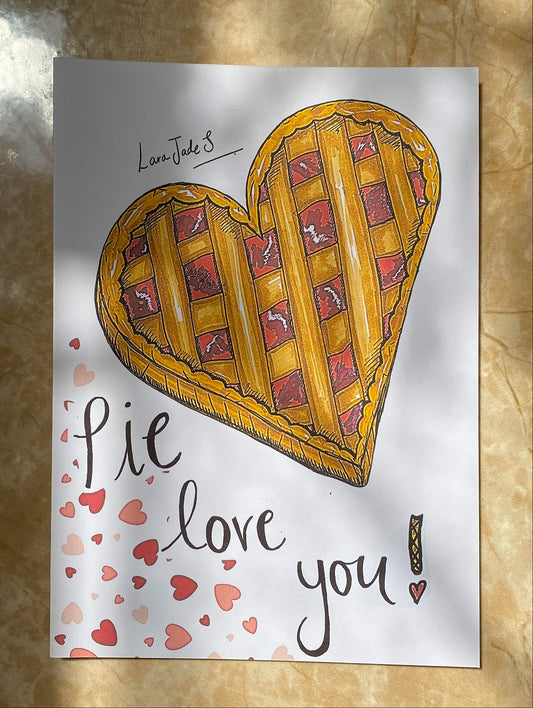 Lara Jade S
Pie
love
you!